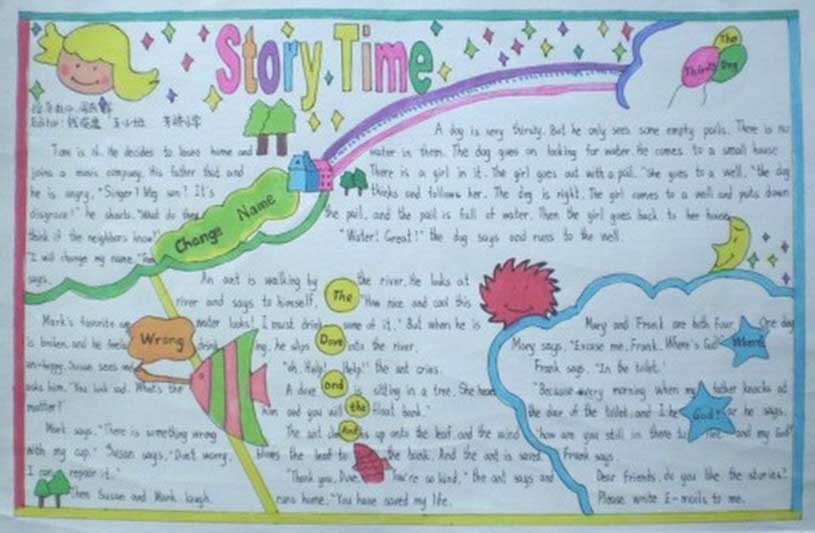 Story Time
The
Thirsty Dog
Editor:
A dog is very thirsty. But he only sees some empty pails. There is no
water in them. The dog goes on looking for water. He comes to a small house
There is a girl in it. The girl goes out with a pail. "She goes to a well." the dog
thinks and follows her. The dog is right. The girl comes to a well and puts down
the pail, and the pail is full of water. Then the girl goes back to her house
"Water! Great!" the dog says and runs to the well.
Tom is 18. He decides to leave home and
joins a music company. His father
he is angry. "Singer! My son! It's
disgrace!" he shouts. "What do they
think if the neighbors know?"
"I will change my name."
says.
Change Name
An ant is walking by the river. He looks at
river and says to himself, "How nice and cool this
water looks! I must drink some of it." But when he is
drinking, he slips into the river.
"oh, Help! Help!" the ant cries.
A dove is sitting in a tree. She hears
him and you will float back."
The ant climbs up onto the leaf, and the wind
blows the leaf to the bank. And the ant is saved
"Thank you, Dove. You're so kind." the ant says and
runs home. "You have saved my life.
The
Dove
and
the
Ant
Mark's favorite
is broken, and he feels
un-happy. Susan sees
asks him. "You look sad. What's the
matter?"
Mark says, "There is something wrong
with my cup." Susan says, "Don't worry.
I can repair it."
Then Susan and Mark laugh.
Wrong
Mary and Frank are both four. One day
Mary says, "Excuse me, Frank. Where's God?"
Frank says, "In the toilet."
"Because every morning when my father knocks at
the door of the toilet, and he says,
how are you still in there my God!"
Frank says.
Where's
God?
Dear friends, do you like the stories?
Please write E-mails to me.